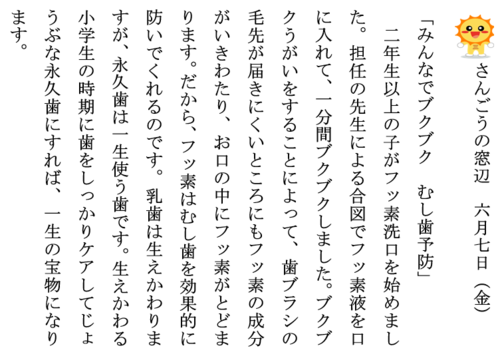 さんごうの窓辺　六月七日（金）
「みんなでブクブク　むし歯予防」
　二年生以上の子がフッ素洗口を始めまし
た。担任の先生による合図でフッ素液を口
に入れて、一分間ブクブクしました。ブクブ
クうがいをすることによって、歯ブラシの
毛先が届きにくいところにもフッ素の成分
がいきわたり、お口の中にフッ素がとどま
ります。だから、フッ素はむし歯を効果的に
防いでくれるのです。乳歯は生えかわりま
すが、永久歯は一生使う歯です。生えかわる
小学生の時期に歯をしっかりケアしてじょ
うぶな永久歯にすれば、一生の宝物になり
ます。